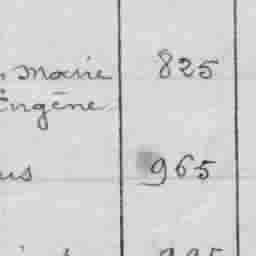 Marie 825
Eugène
965